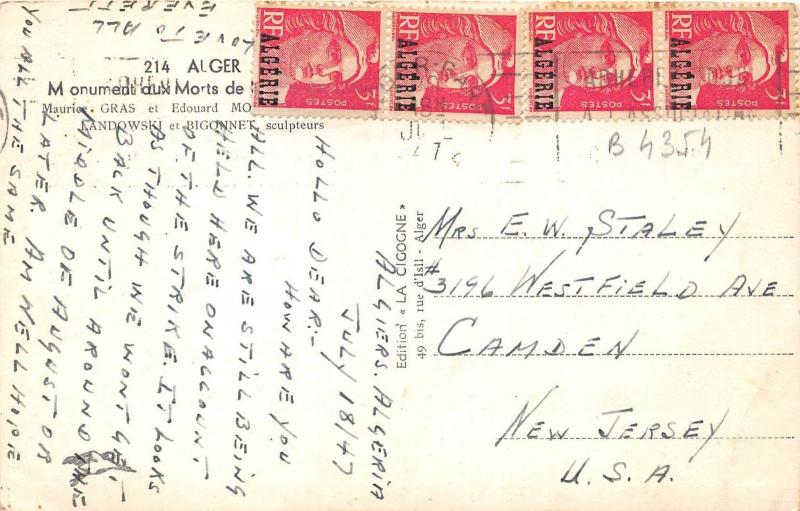 214 ALGER
Monument aux Morts de
Maurice GRAS et Edouard MO
LANDOWSKI et BIGONNET, sculpteurs
RF ALGÉRIE POSTES 3f
RF ALGÉRIE POSTES 3f
RF ALGÉRIE POSTES 3f
RF ALGÉRIE POSTES 3f
B 4354
Edition « LA CIGOGNE »
49 bis, rue d'Isli - Alger
ALGIERS. ALGERIA
JULY 18/47
HOLLO DEAR:-
HOW ARE YOU
ALL. WE ARE STILL BEING
HELD HERE ON ACCOUNT
OF THE STRIKE. IT LOOKS
AS THOUGH WE WONT GET
BACK UNTIL AROUND THE
MIDDLE OF AUGUST OR
LATER. AM WELL HOPE
YOU ALL THE SAME
LOVE TO ALL
EVERETT
MRS E. W. STALEY
#3196 WESTFIELD AVE
CAMDEN
NEW JERSEY
U. S. A.